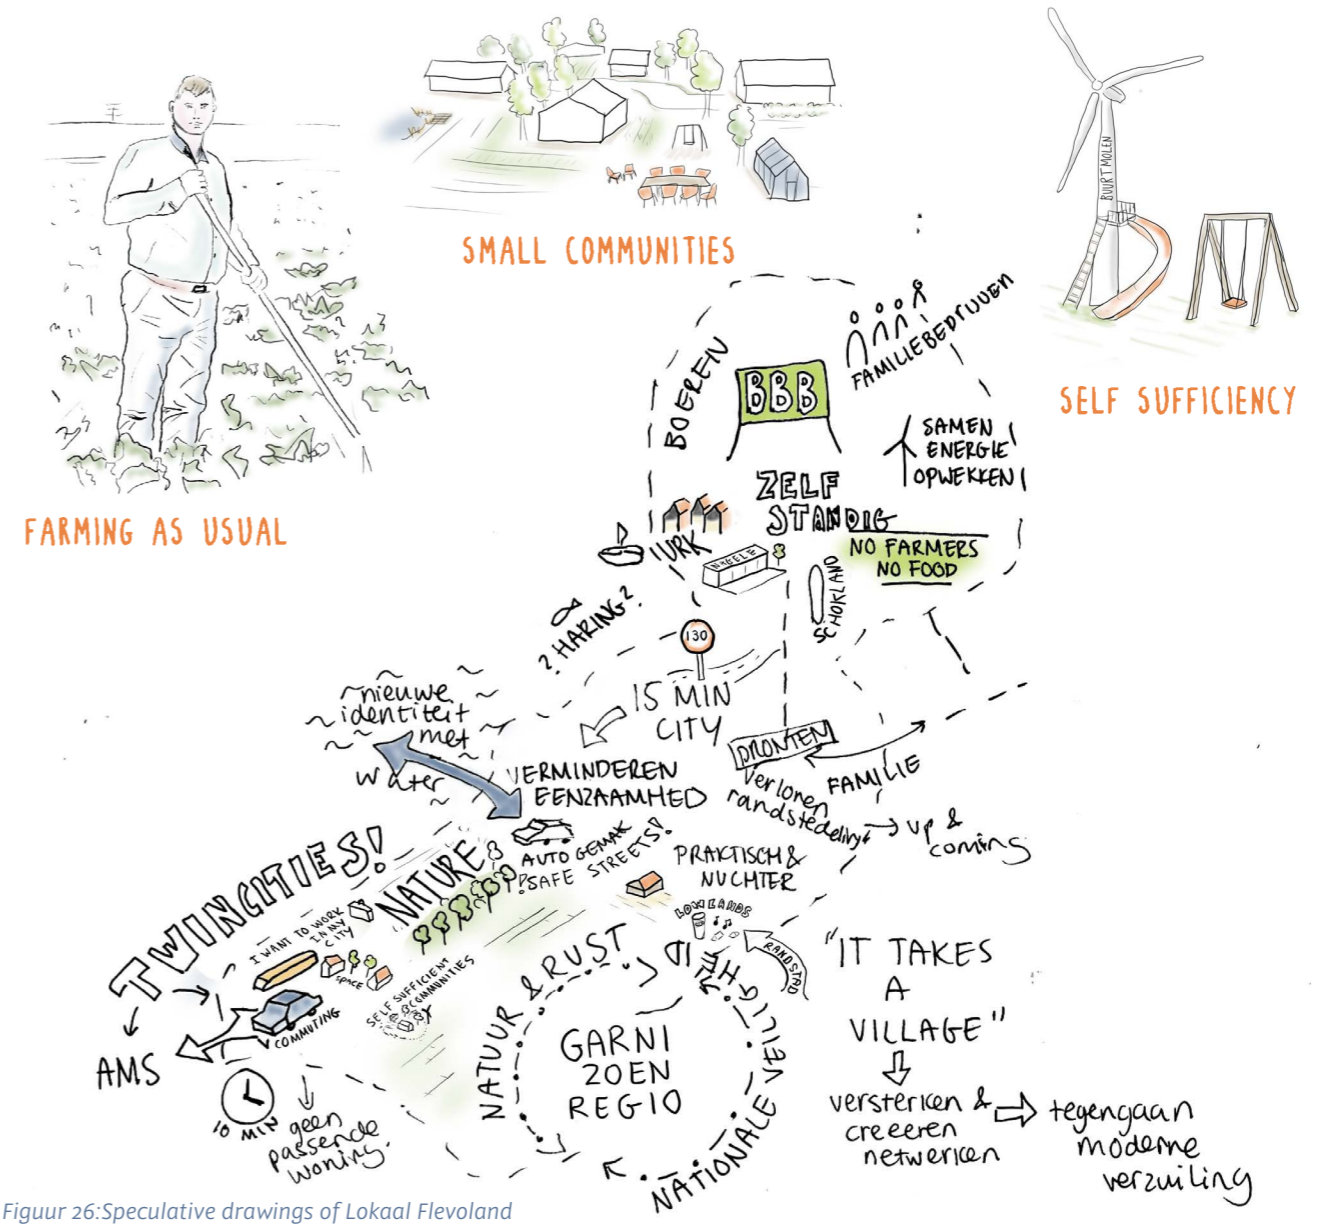 BUURTMOLEN
SMALL COMMUNITIES
SELF SUFFICIENCY
FARMING AS USUAL
BOEREN
BBB
FAMILIEBEDRIJVEN
SAMEN
ENERGIE
OPWEKKEN
ZELF
STANDIG
NO FARMERS
NO FOOD
URK
NAGELE
SCHOKLAND
? HARING?
130
15 MIN
CITY
nieuwe
identiteit
met
water
VERMINDEREN
EENZAAMHED
DRONTEN
FAMILIE
verloren
up &
coming
AUTO GEMAK
!SAFE STREETS!
PRAKTISCH &
NUCHTER
LOWLANDS
RANDSTAD
TWINCITIES!
NATURE
I WANT TO WORK
IN MY
CITY
SPACE
SELF SUFFICIENT
COMMUNITIES
COMMUTING
AMS
10 MIN
geen
passende
woning.
NATUUR & RUST
GARNI
ZOEN
REGIO
NATIONALE VEILIGHEID
"IT TAKES
A
VILLAGE"
versterken &
creeeren
netwerken
tegengaan
moderne
verzuiling
Figuur 26:Speculative drawings of Lokaal Flevoland